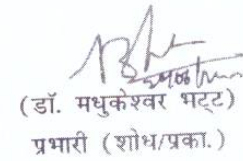 (डॉ. मधुकेश्वर भट्ट)
प्रभारी (शोध/प्रका.)